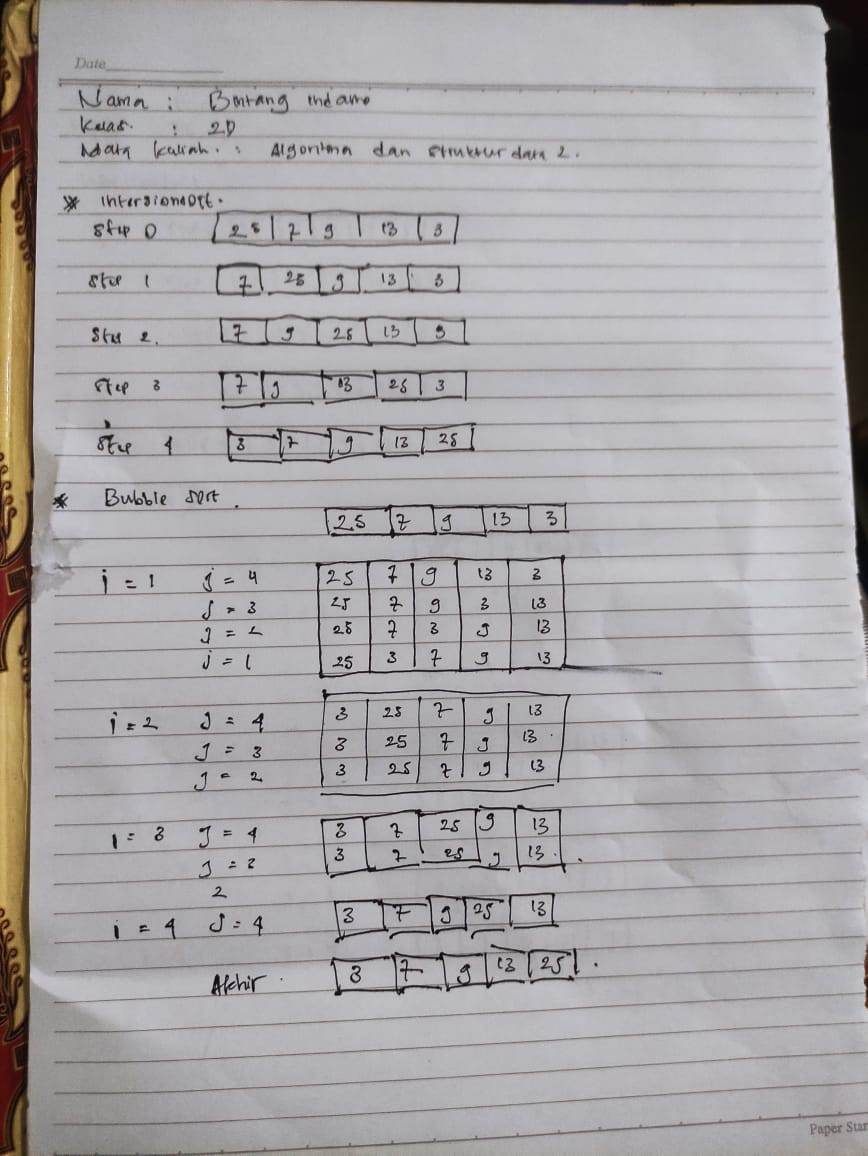 Date
Nama : Bintang indamo
Kelas. : 2D
Mata kuliah. : Algoritma dan struktur data 2.
* Intersionsort.
Step 0 25 7 9 13 3
Step 1 7 25 9 13 3
Step 2. 7 9 25 13 3
Step 3 7 9 13 25 3
Step 4 3 7 9 13 25
* Bubble sort.
25 7 9 13 3
i = 1 j = 4 25 7 9 13 3
j = 3 25 7 9 3 13
j = 2 25 7 3 9 13
j = 1 25 3 7 9 13
i = 2 j = 4 3 25 7 9 13
j = 3 3 25 7 9 13
j = 2 3 25 7 9 13
i = 3 j = 4 3 7 25 9 13
j = 3 3 7 25 9 13
2
i = 4 j = 4 3 7 9 25 13
Akhir. 3 7 9 13 25
Paper Star